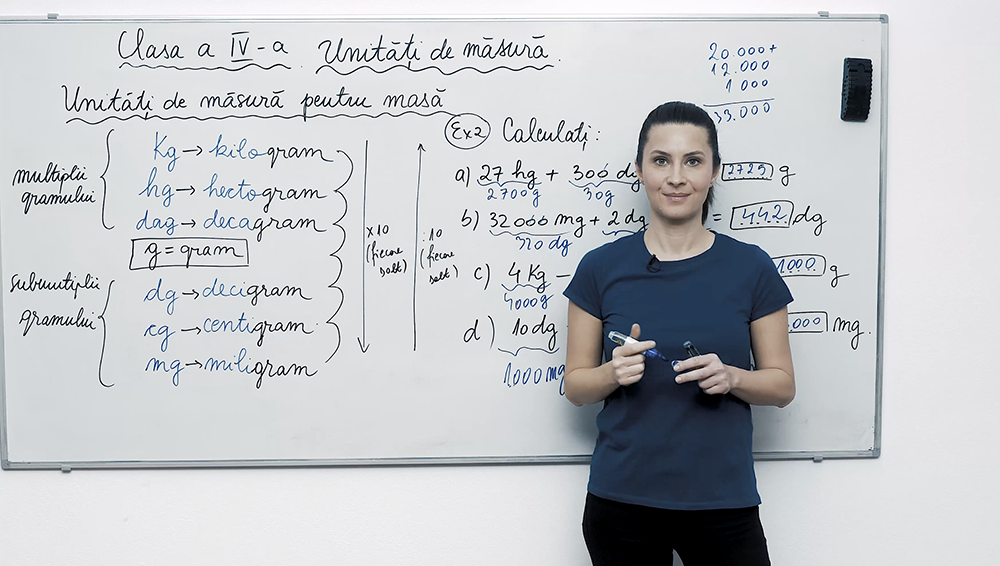 Clasa a IV-a Unități de măsură
Unități de măsură pentru masă
multiplii
gramului
Kg → kilogram
hg → hectogram
dag → decagram
g = gram
submultiplii
gramului
dg → decigram
cg → centigram
mg → miligram
x10
(fiecare
salt)
: 10
(fiecare
salt)
Ex2 Calculați :
a) 27 hg + 300 dg
2700g 30g
g
b) 32000 mg + 2 dg = 442 dg
320 dg
c) 4 Kg - 1000 g
4000g
d) 10dg .000 mg.
1.000 mg
20.000+
12.000
1 000
33.000